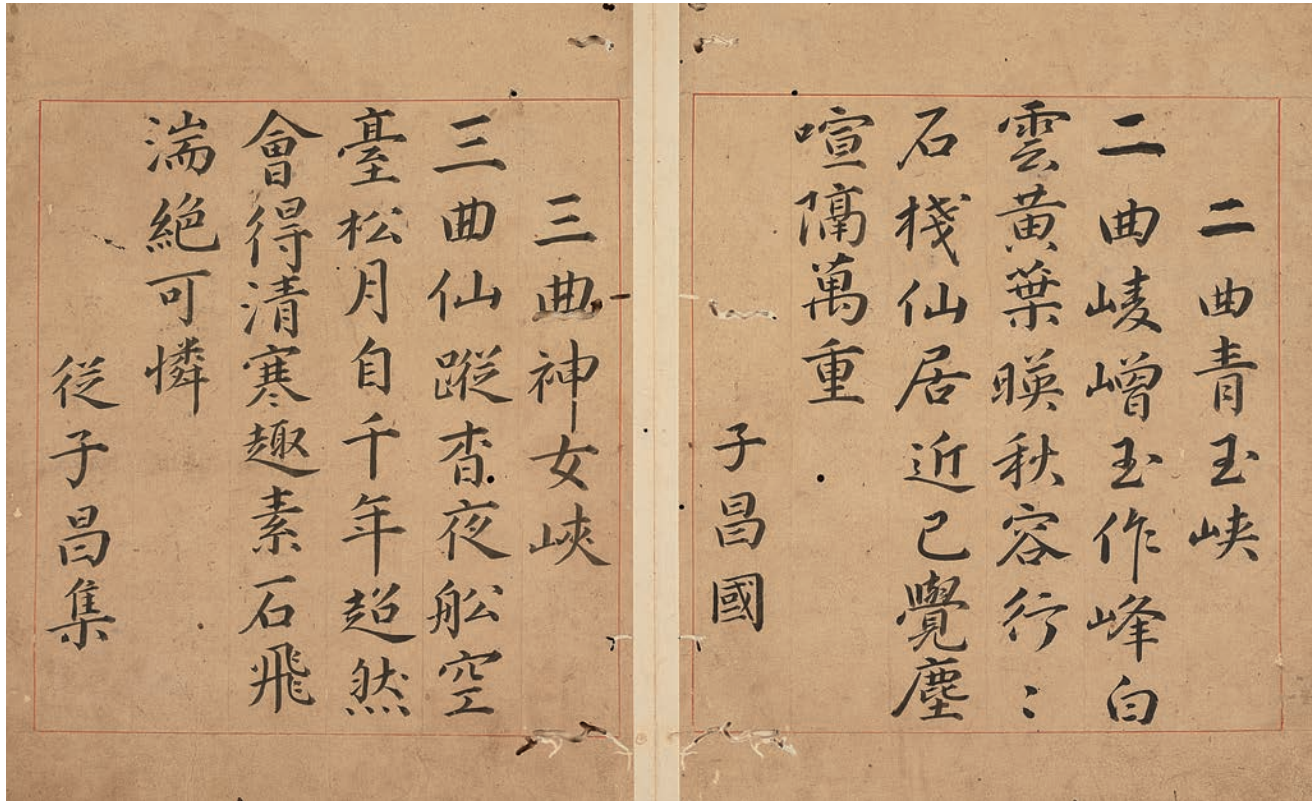 二曲青玉峽
二曲崚嶒玉作峰白
雲黃葉暎秋容行〻
石棧仙居近已覺塵
喧隔萬重
子昌國
三曲神女峽
三曲仙蹤杳夜船空
臺松月自千年超然
會得清寒趣素石飛
湍絕可憐
從子昌集